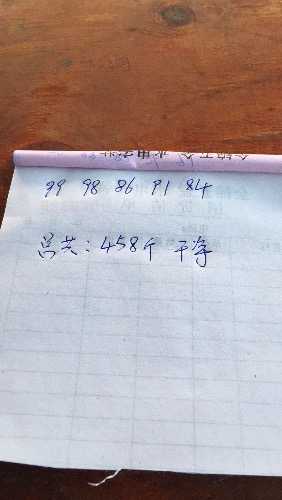 99 98 86 91 84
总共：458斤 干净